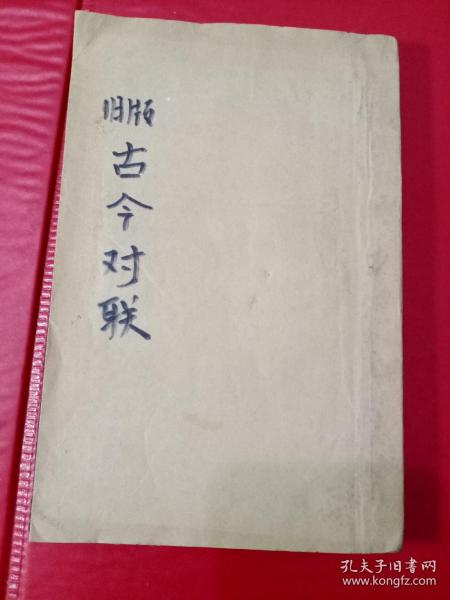 旧版
古今对联
孔夫子旧书网
www.kongfz.com